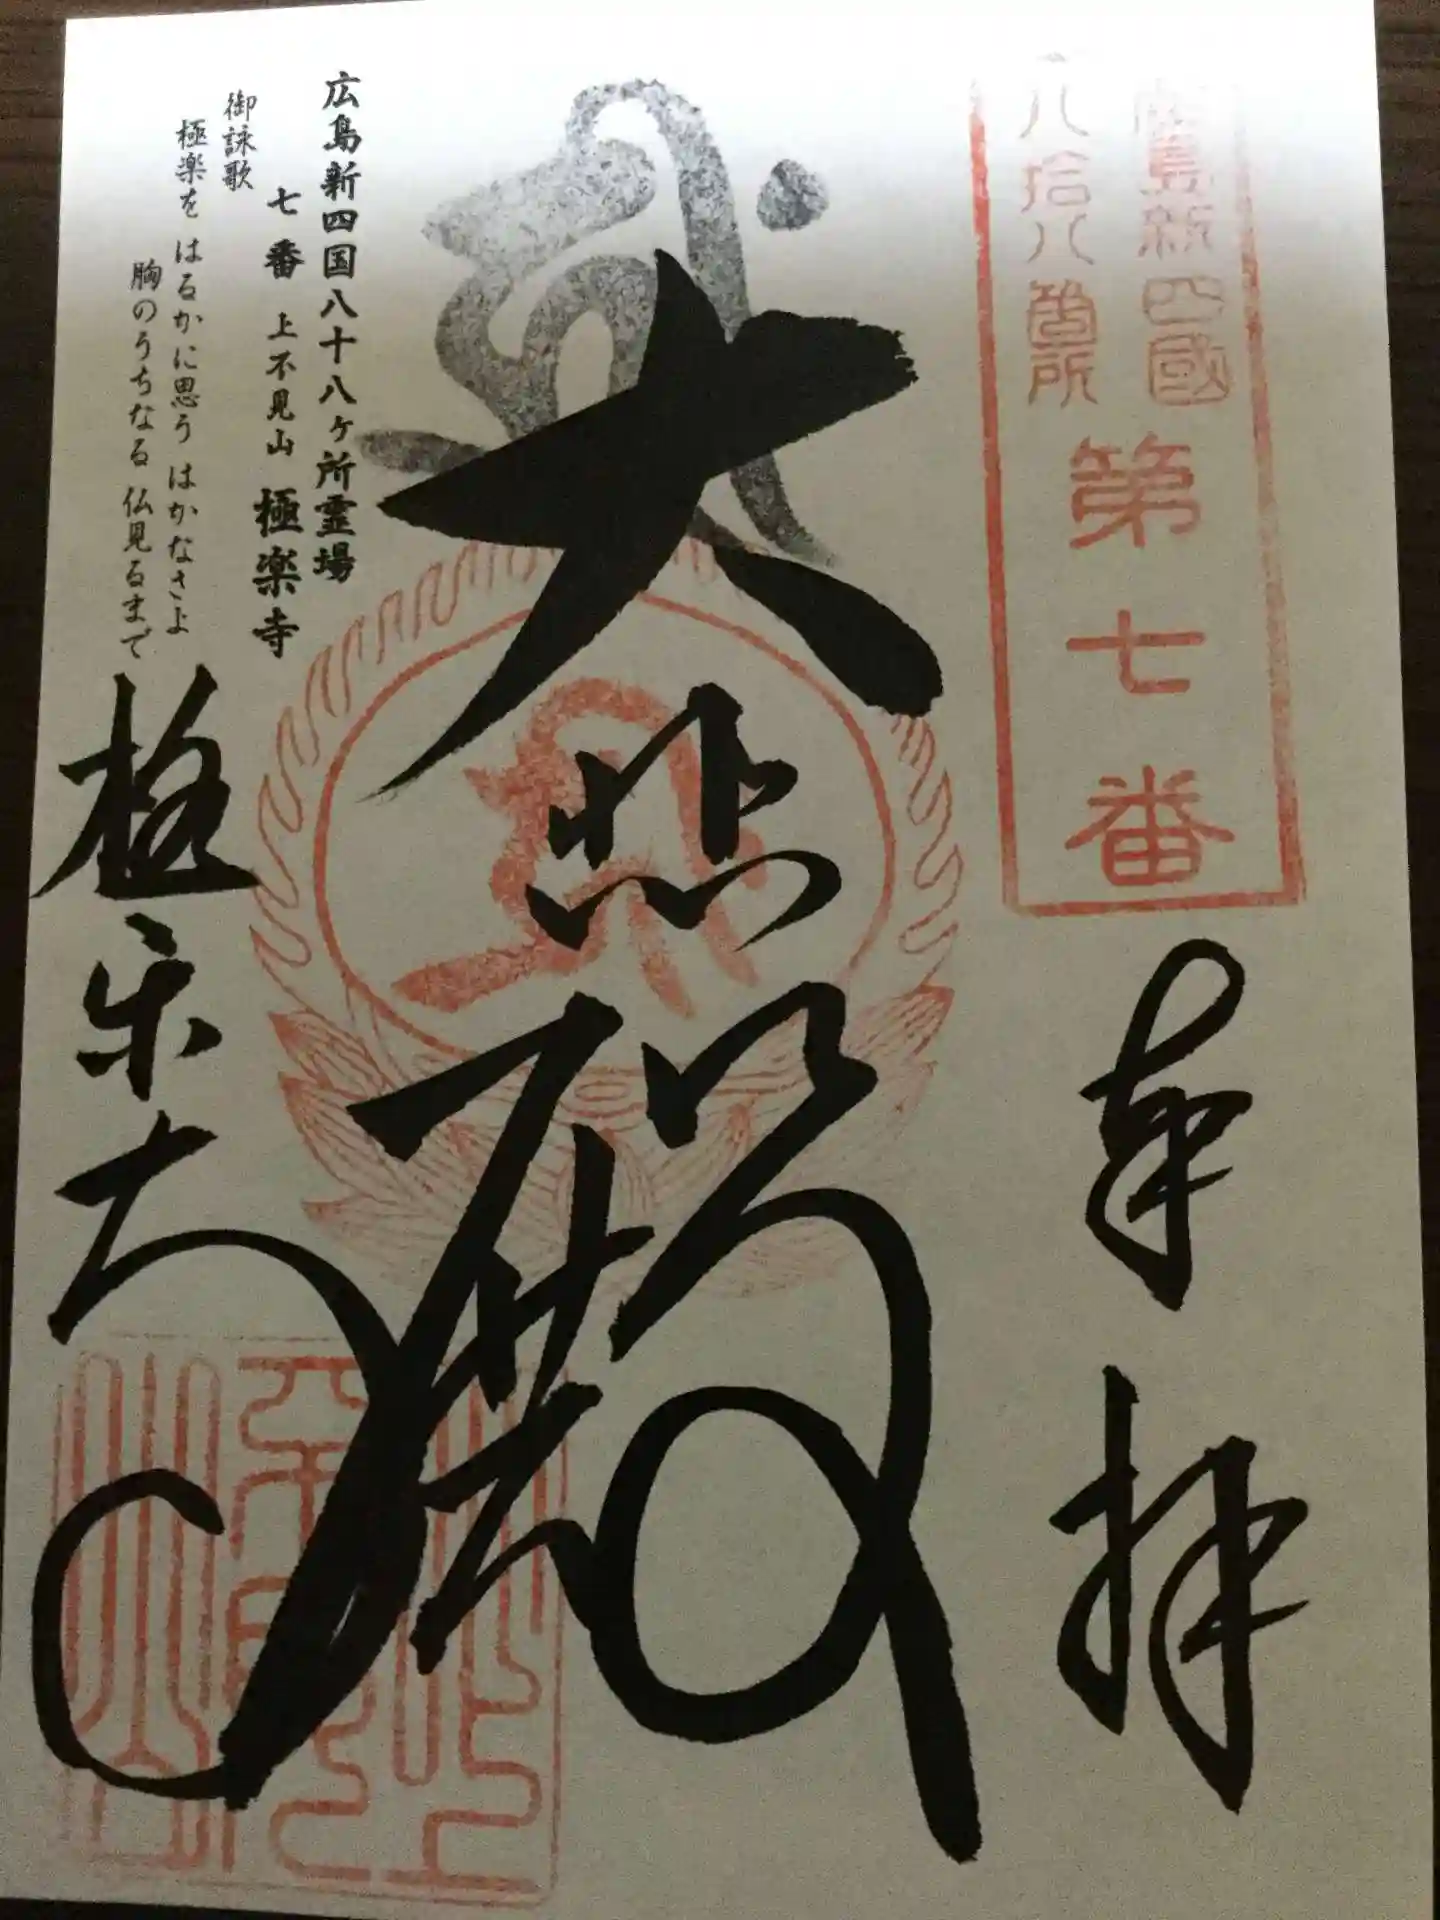 廣島新四國
八拾八箇所
第七番
奉拝
大悲殿
広島新四国八十八ヶ所霊場
七番 上不見山 極楽寺
御詠歌
極楽を はるかに思う はかなさよ
胸のうちなる 仏見るまで
極楽寺
上不見山